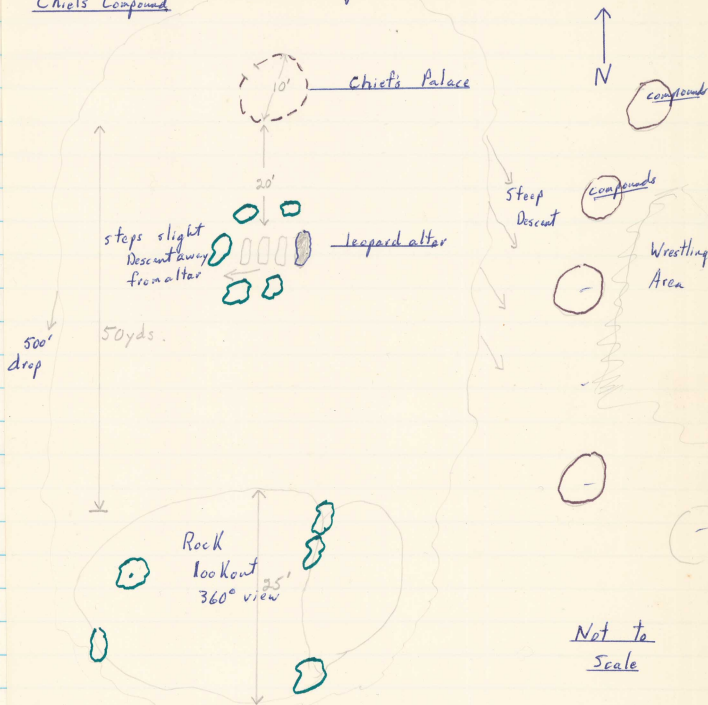 Chiefs Compound
N
10'
Chief's Palace
compounds
20'
compounds
Steep
Descent
steps slight
Descent away
from altar
leopard altar
Wrestling
Area
50 yds.
500'
drop
Rock
lookout
360° view
25'
Not to
Scale